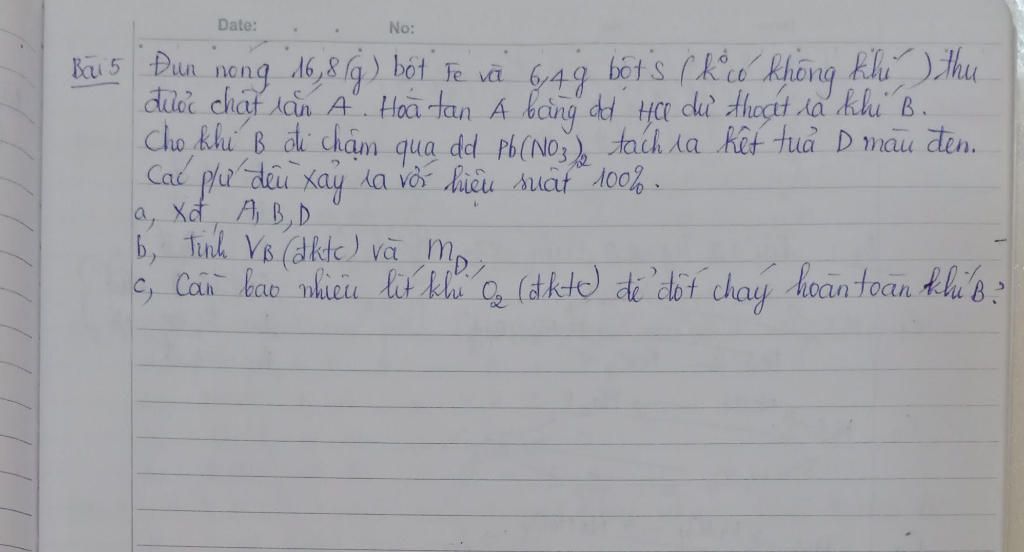 Date: . . No:
Bài 5 Đun nóng 16,8(g) bột Fe và 6,4g bột S (ko có không khí) thu
được chất rắn A. Hoà tan A bằng dd HCl dư thoát ra khí B.
Cho khí B đi chậm qua dd Pb(NO3)2 tách ra kết tuả D màu đen.
Các p/ứ đều xảy ra với hiệu suất 100%.
a, Xđ A, B, D
b, Tính VB (đktc) và mD.
c, Cần bao nhiêu lít khí O2 (đktc) để đốt cháy hoàn toàn khí B?